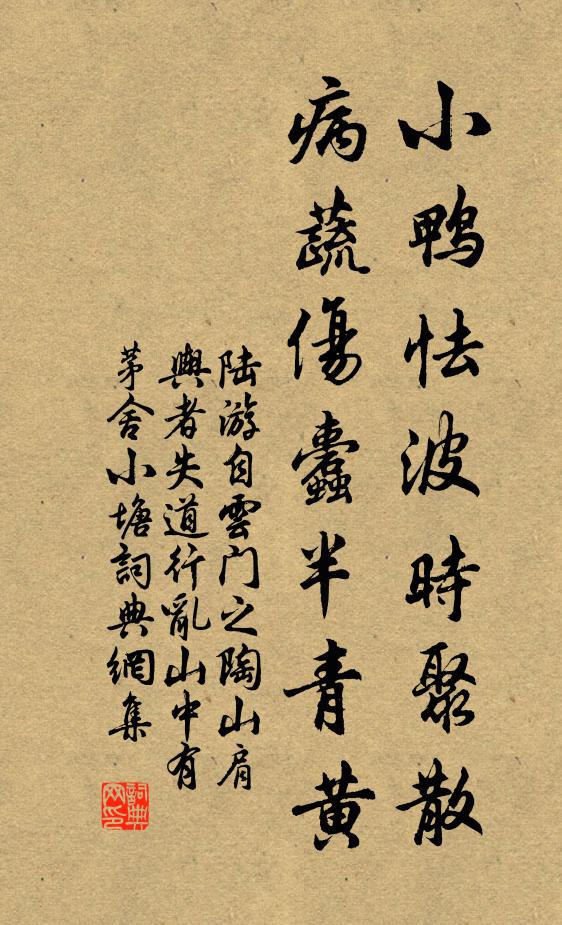 小鸭怯波時聚散
病蔬傷蠹半青黄
陆游自雲门之陶山肩
輿者失道行亂山中有
茅舍小塘詞典網集
詞典
网印